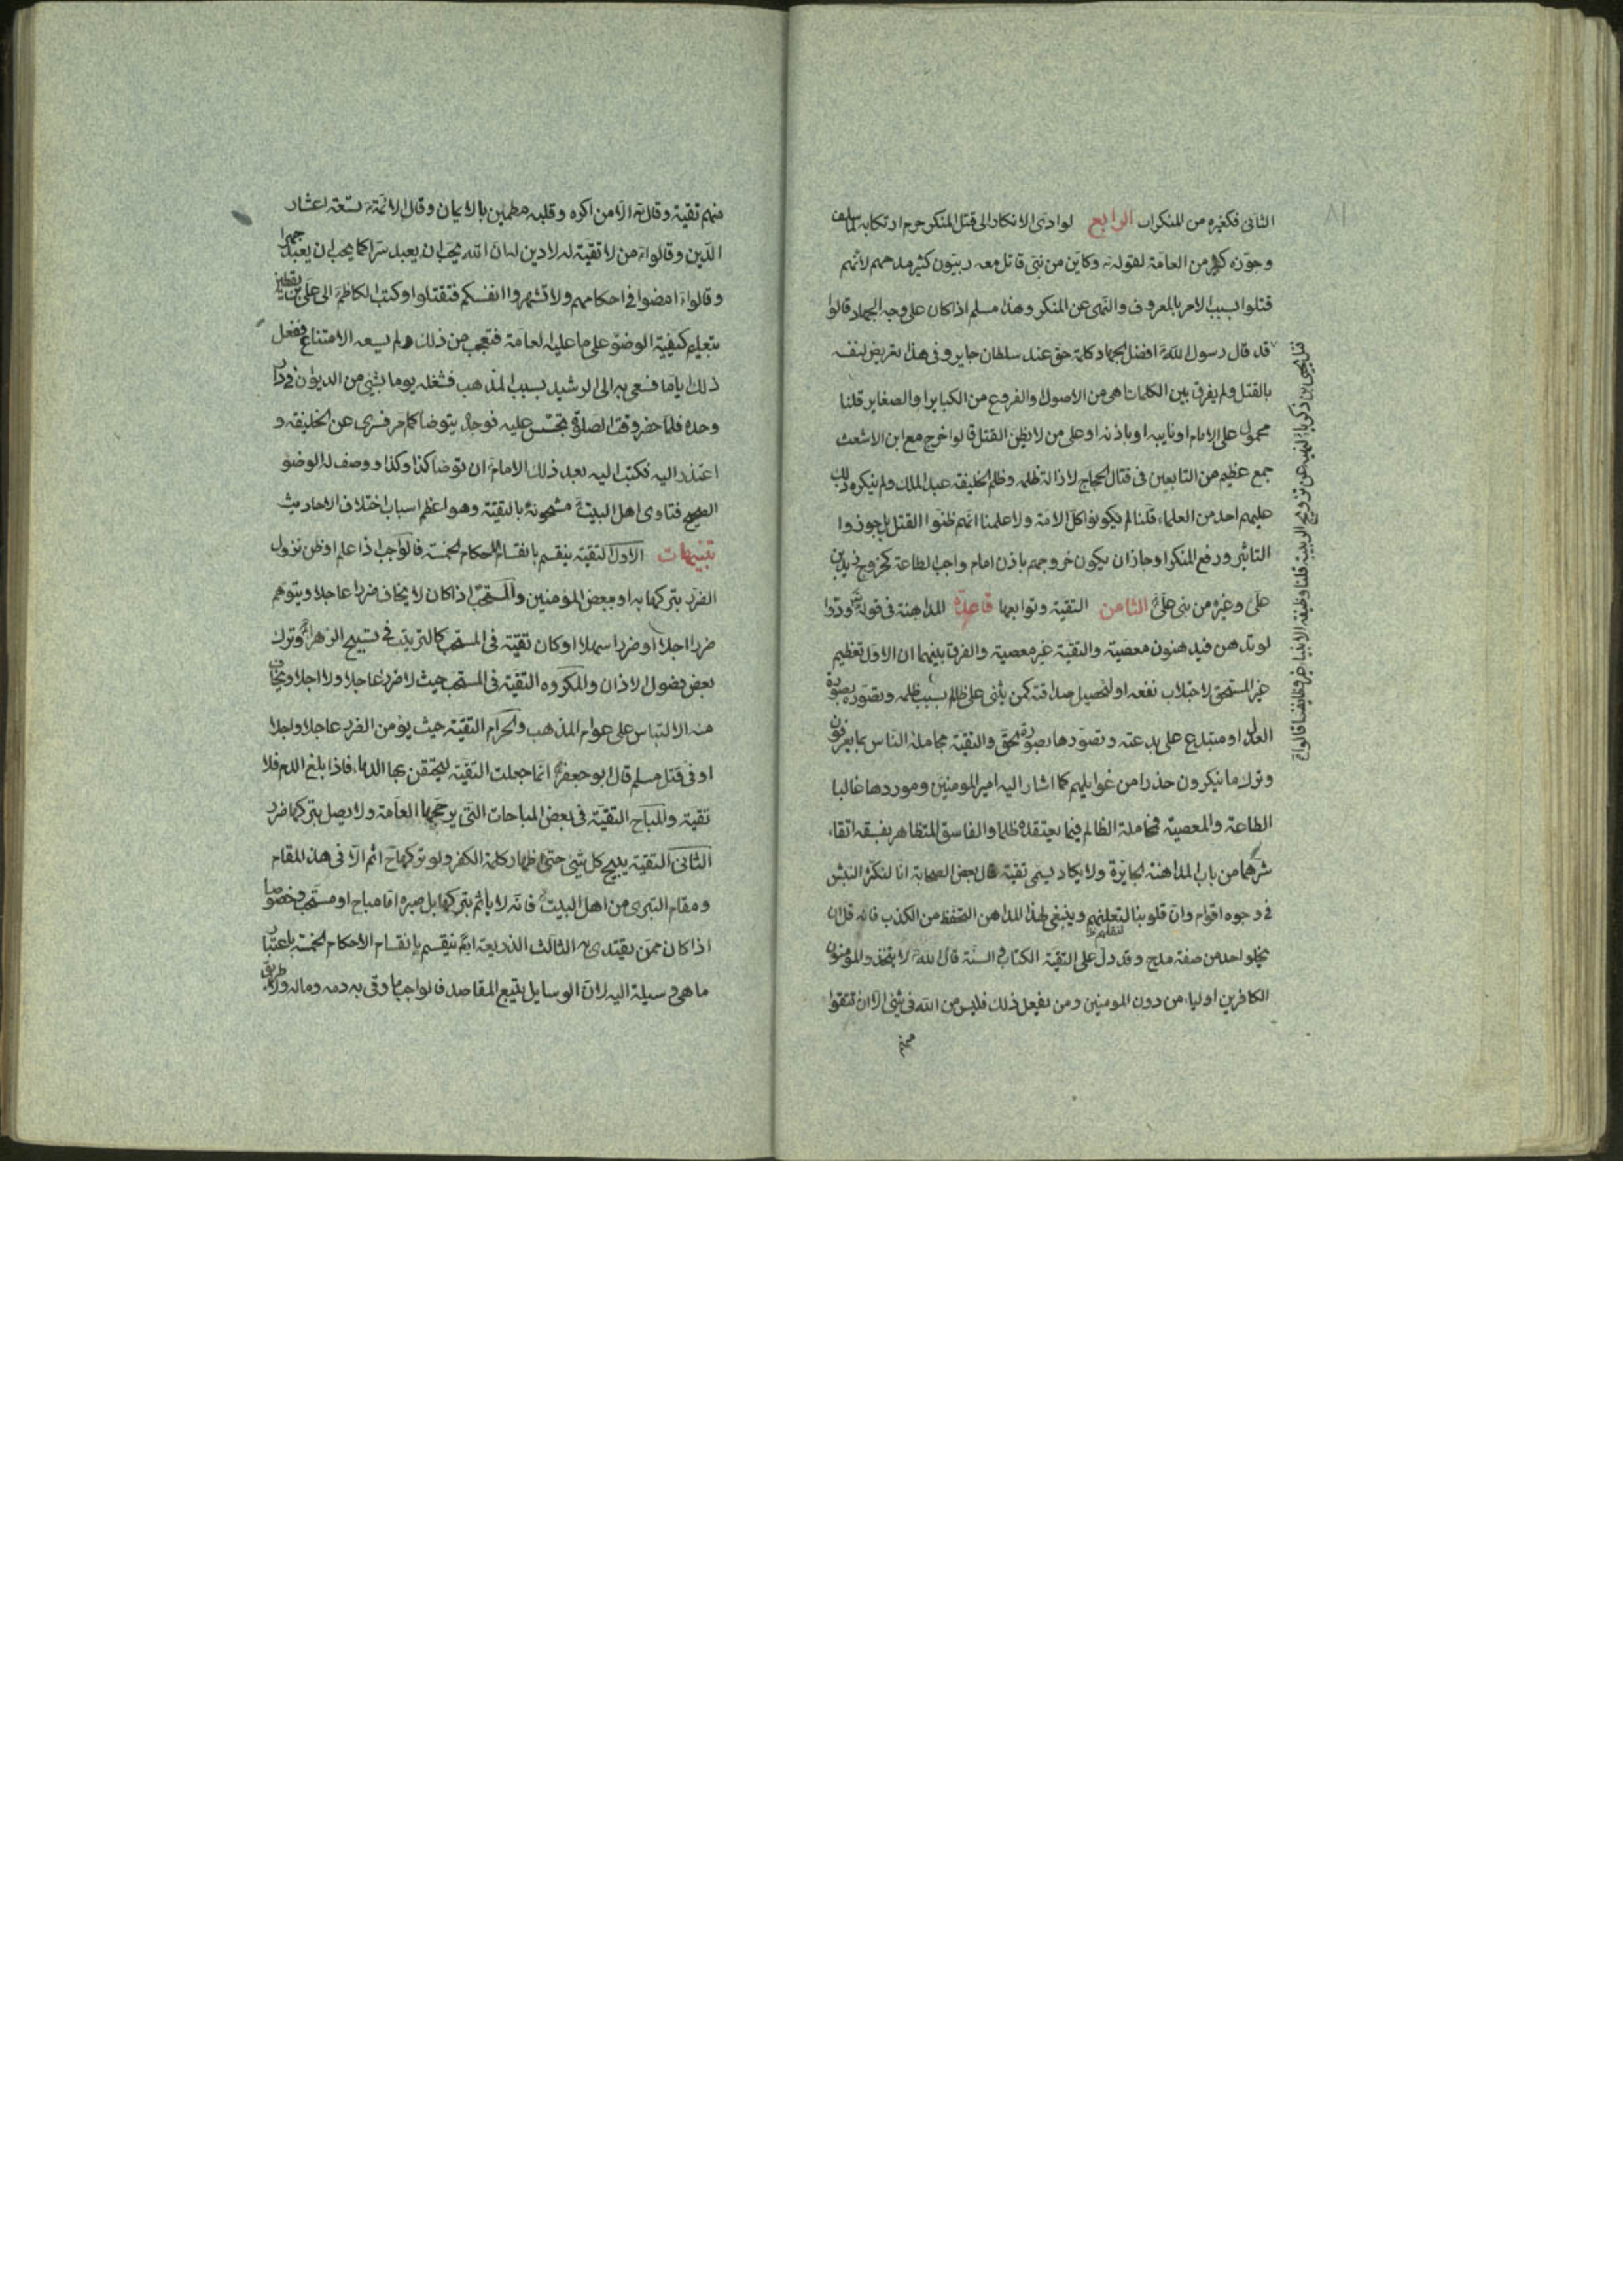 ٨١
الثانى فكغيره من المنكرات الرابع لو ادى الانكار الى قتل المنكر حرم ارتكابه لما سلف
وجوزه كثير من العامة لقوله تع وكاين من نبى قاتل معه ربيون كثير مدحهم لانهم
قتلوا بسبب الامر بالمعروف والنهى عن المنكر وهذا مسلم اذا كان على وجه الجهاد قالوا
قتل يحيى بن زكريا لنهيه عن تزويج الربيبة قلنا وظيفة الانبيا غير وظايفنا قالوا
قد قال رسول الله ص افضل الجهاد كلمة حق عند سلطان جاير وفى هذا تعريض لنفسه
بالقتل ولم يفرق بين الكلمات اهى من الاصول والفروع من الكباير او الصغاير قلنا
محمول على الامام او نايبه او باذنه او على من لا يظن القتل قالوا خرج مع ابن الاشعث
جمع عظيم من التابعين فى قتال الحجاج لازالة ظلمه وظلم الخليفة عبد الملك ولم ينكر ذلك
عليهم احد من العلماء قلنا لم يكونوا كل الامة ولا علمنا انهم ظنوا القتل بل جوزوا
التاثير ورفع المنكر او جاز ان يكون خروجهم باذن امام واجب الطاعة كخروج زيد بن
على وغيره من بنى على الثامن التقية وتوابعها قاعدة المداهنة فى قوله تع ودوا
لو تدهن فيدهنون معصية والتقية غير معصية والفرق بينهما ان الاول تعظيم
غير المستحق لاجتلاب نفعه او لتحصيل صداقته كمن يثنى على ظالم بسبب ظلمه وتصوره بصورة
العدل او مبتدع على بدعته وتصورها بصورة الحق والتقية مجاملة الناس بما يعرفون
وترك ما ينكرون حذرا من غوايلهم كما اشار اليه امير المومنين وموردها غالبا
الطاعة والمعصية فمجاملة الظالم فيما يعتقده ظلما والفاسق المتظاهر بفسقه اتقاء
شرهما من باب المداهنة الجايزة ولا يكاد يسمى تقية قال بعض الصحابة انا لنكشر
فى وجوه اقوام وان قلوبنا لتعلنهم وينبغى لهذا المداهن التحفظ من الكذب فانه قل ان
لتقليهم
يخلو احد من صفة مدح وقد دل على التقية الكتاب والسنة قال الله تع لا يتخذ المؤمنون
الكافرين اولياء من دون المومنين ومن يفعل ذلك فليس من الله فى شئ الا ان تتقوا
منهم
منهم تقية وقال تع الا من اكره وقلبه مطمئن بالايمان وقال الائمة ع تسعة اعشار
الدين وقالوا ع من لا تقية له لا دين له ان الله يحب ان يعبد سرا كما يحب ان يعبد جهرا
وقالوا ع امضوا فى احكامهم ولا تشهروا انفسكم فتقتلوا وكتب الكاظم الى على بن يقطين
بتعليم كيفية الوضوء على ما عليه العامة فتعجب من ذلك ولم يسعه الامتناع ففعل
ذلك اياما فسعى به الى الرشيد بسبب المذهب فشغله يوما بشئ من الديوان فى دار
وحده فلما حضر وقت الصلوة تجسس عليه فوجده يتوضا كما مر فسرى عن الخليفة و
اعتذر اليه فكتب اليه بعد ذلك الامام ان توضا كذا وكذا ووصف له الوضوء
الصحيح فتاوى اهل البيت ع مشحونة بالتقية وهو اعظم اسباب اختلاف الاحاديث
تنبيهات الاول التقية ينقسم بانقسام الاحكام الخمسة فالواجب اذا علم او ظن نزول
الضرر بتركها به او ببعض المؤمنين والمستحب اذا كان لا يخاف ضررا عاجلا ويتوهم
ضررا اجلا او ضررا سهلا او كان تقية فى المستحب كالترتيب فى تسبيح الزهراء وترك
بعض فصول الاذان والمكروه التقية فى المستحب حيث لا ضرر عاجلا ولا اجلا ويخاف
منه الالتباس على عوام المذهب والحرام التقية حيث يؤمن الضرر عاجلا واجلا
او فى قتل مسلم قال ابو جعفر ع انما جعلت التقية ليحقن بها الدماء فاذا بلغ الدم فلا
تقية والمباح التقية فى بعض المباحات التى يرجحها العامة ولا يصل بتركها ضرر
الثانى التقية يبيح كل شئ حتى اظهار كلمة الكفر ولو تركها ح اثم الا فى هذا المقام
ومقام التبرى من اهل البيت ع فانه لا ياثم بتركها بل صبره اما مباح او مستحب وخصوصا
اذا كان ممن يقتدى به الثالث الذريعة ايض ينقسم بانقسام الاحكام الخمسة باعتبار
ما هى وسيلة اليه لان الوسايل يتبع المقاصد فالواجب ما وقى به دمه وماله ولا طريق